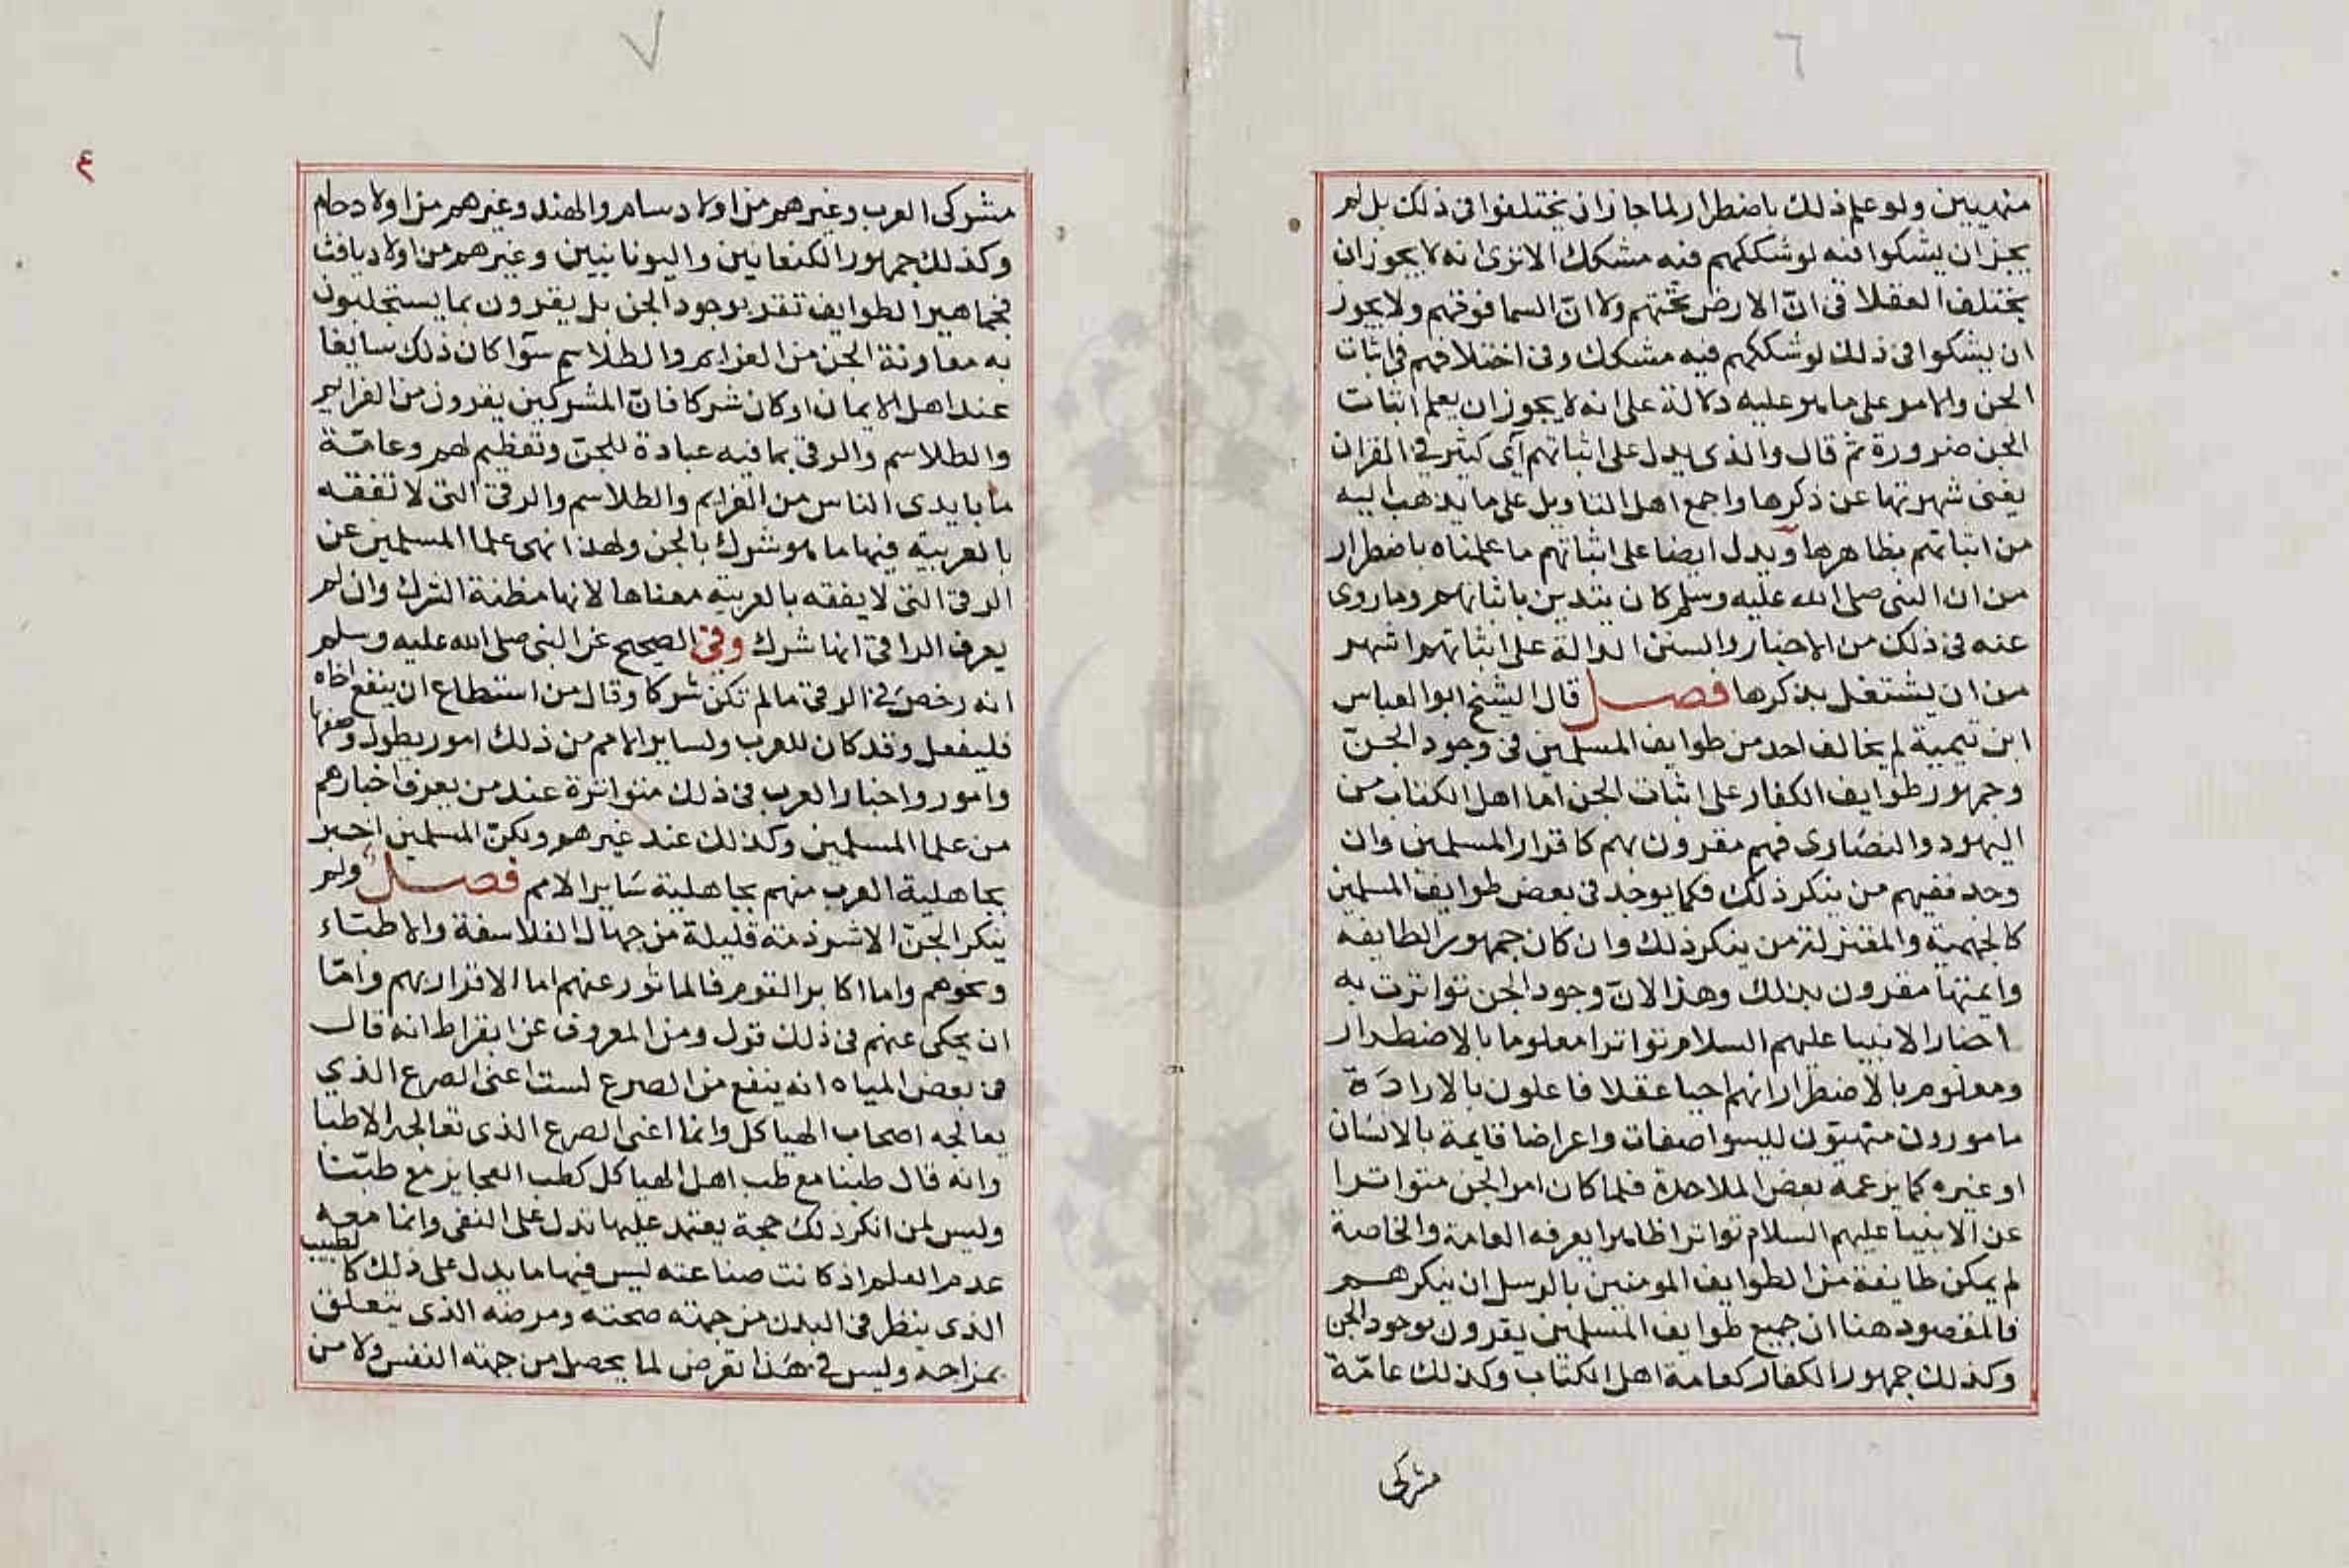 ٦
منهيين ولو علم ذلك باضطرار لما جاز ان يختلفوا في ذلك بل لم
يجز ان يشكوا فيه لو شككهم فيه مشكك الا ترى انه لا يجوز ان
يختلف العقلا في انّ الارض تحتهم ولا انّ السما فوقهم ولا يجوز
ان يشكوا في ذلك لو شككهم فيه مشكك وفي اختلافهم في اثبات
الجن والامر على ما هو عليه دلالة على انه لا يجوز ان يعلم اثبات
الجن ضرورة ثم قال والذي يدل على اثباتهم آى كثير في القران
يغني شهرتها عن ذكرها واجمع اهل التاويل على ما يذهب اليه
من اثباتهم بظاهرها ويدل ايضا على اثباتهم ما علمناه باضطرار
من ان النبي صلى الله عليه وسلم كان يتدين باثباتهم وما روى
عنه في ذلك من الاخبار والسنن الدالة على اثباتهم اشهر
من ان يشتغل بذكرها فصل قال الشيخ ابو العباس
ابن تيمية لم يخالف احد من طوايف المسلمين في وجود الجنّ
وجمهور طوايف الكفار على اثبات الجن اما اهل الكتاب من
اليهود والنصارى فهم مقرون بهم كاقرار المسلمين وان
وجد فيهم من ينكر ذلك فكما يوجد في بعض طوايف المسلمين
كالجهمية والمعتزلة من ينكر ذلك وان كان جمهور الطايفه
وايمتها مقرون بذلك وهذا لانّ وجود الجن تواترت به
اخبار الانبيا عليهم السلام تواترا معلوما بالاضطرار
ومعلوم بالاضطرار انهم احيا عقلا فاعلون بالارادة
مامورون منهيون ليسوا صفات واعراضا قايمة بالانسان
او غيره كما يزعمه بعض الملاحدة فلما كان امر الجن متواترا
عن الانبيا عليهم السلام تواترا ظاهرا يعرفه العامة والخاصة
لم يمكن طايفة من الطوايف المومنين بالرسل ان ينكرهم
فالمقصود هنا ان جميع طوايف المسلمين يقرون بوجود الجن
وكذلك جمهور الكفار كعامة اهل الكتاب وكذلك عامّة
مشركى
٧
٤
مشركى العرب وغيرهم من اولاد سام والهند وغيرهم من اولاد حام
وكذلك جمهور الكنعانيين واليونانيين وغيرهم من اولاد يافث
فجماهير الطوايف تقر بوجود الجن بل يقرون بما يستجلبون
به معاونة الجن من العزايم والطلاسم سوّا كان ذلك سايغا
عند اهل الايمان او كان شركا فانّ المشركين يقرون من العزايم
والطلاسم والرقى بما فيه عبادة للجنّ وتعظيم لهم وعامّة
ما بايدى الناس من العزايم والطلاسم والرقى التى لا تفقه
بالعربية فيها ما هو شرك بالجن ولهذا نهى علما المسلمين عن
الرقى التى لا يفقه بالعربية معناها لانها مظنة الشرك وان لم
يعرف الراقى انها شرك وفي الصحيح عن النبى صلى الله عليه وسلم
انه رخص في الرقى ما لم تكن شركا وقال من استطاع ان ينفع اخاه
فليفعل وقد كان للعرب ولساير الامم من ذلك امور يطول وصفها
وامور واخبار العرب في ذلك متواترة عند من يعرف اخبارهم
من علما المسلمين وكذلك عند غيرهم ولكنّ المسلمين اخبر
بجاهلية العرب منهم بجاهلية ساير الامم فصل ولم
ينكر الجنّ الا شرذمة قليلة من جهال الفلاسفة والاطبّاء
ونحوهم واما اكابر القوم فالماثور عنهم اما الاقرار بهم وامّا
ان يحكى عنهم في ذلك قول ومن المعروف عن ابقراط انه قال
في بعض المياه انه ينفع من الصرع لست اعنى الصرع الذي
يعالجه اصحاب الهياكل وانما اعنى الصرع الذى تعالجه الاطبا
وانه قال طبنا مع طب اهل الهياكل كطب العجايز مع طبّنا
وليس لمن انكر ذلك حجة يعتمد عليها تدل على النفى وانما معه
عدم العلم اذ كانت صناعته ليس فيها ما يدل على ذلك كالطبيب
الذى ينظر في البدن من جهة صحته ومرضه الذى يتعلق
بمزاجه وليس في هذا تعرض لما يحصل من جهة النفس ولا من